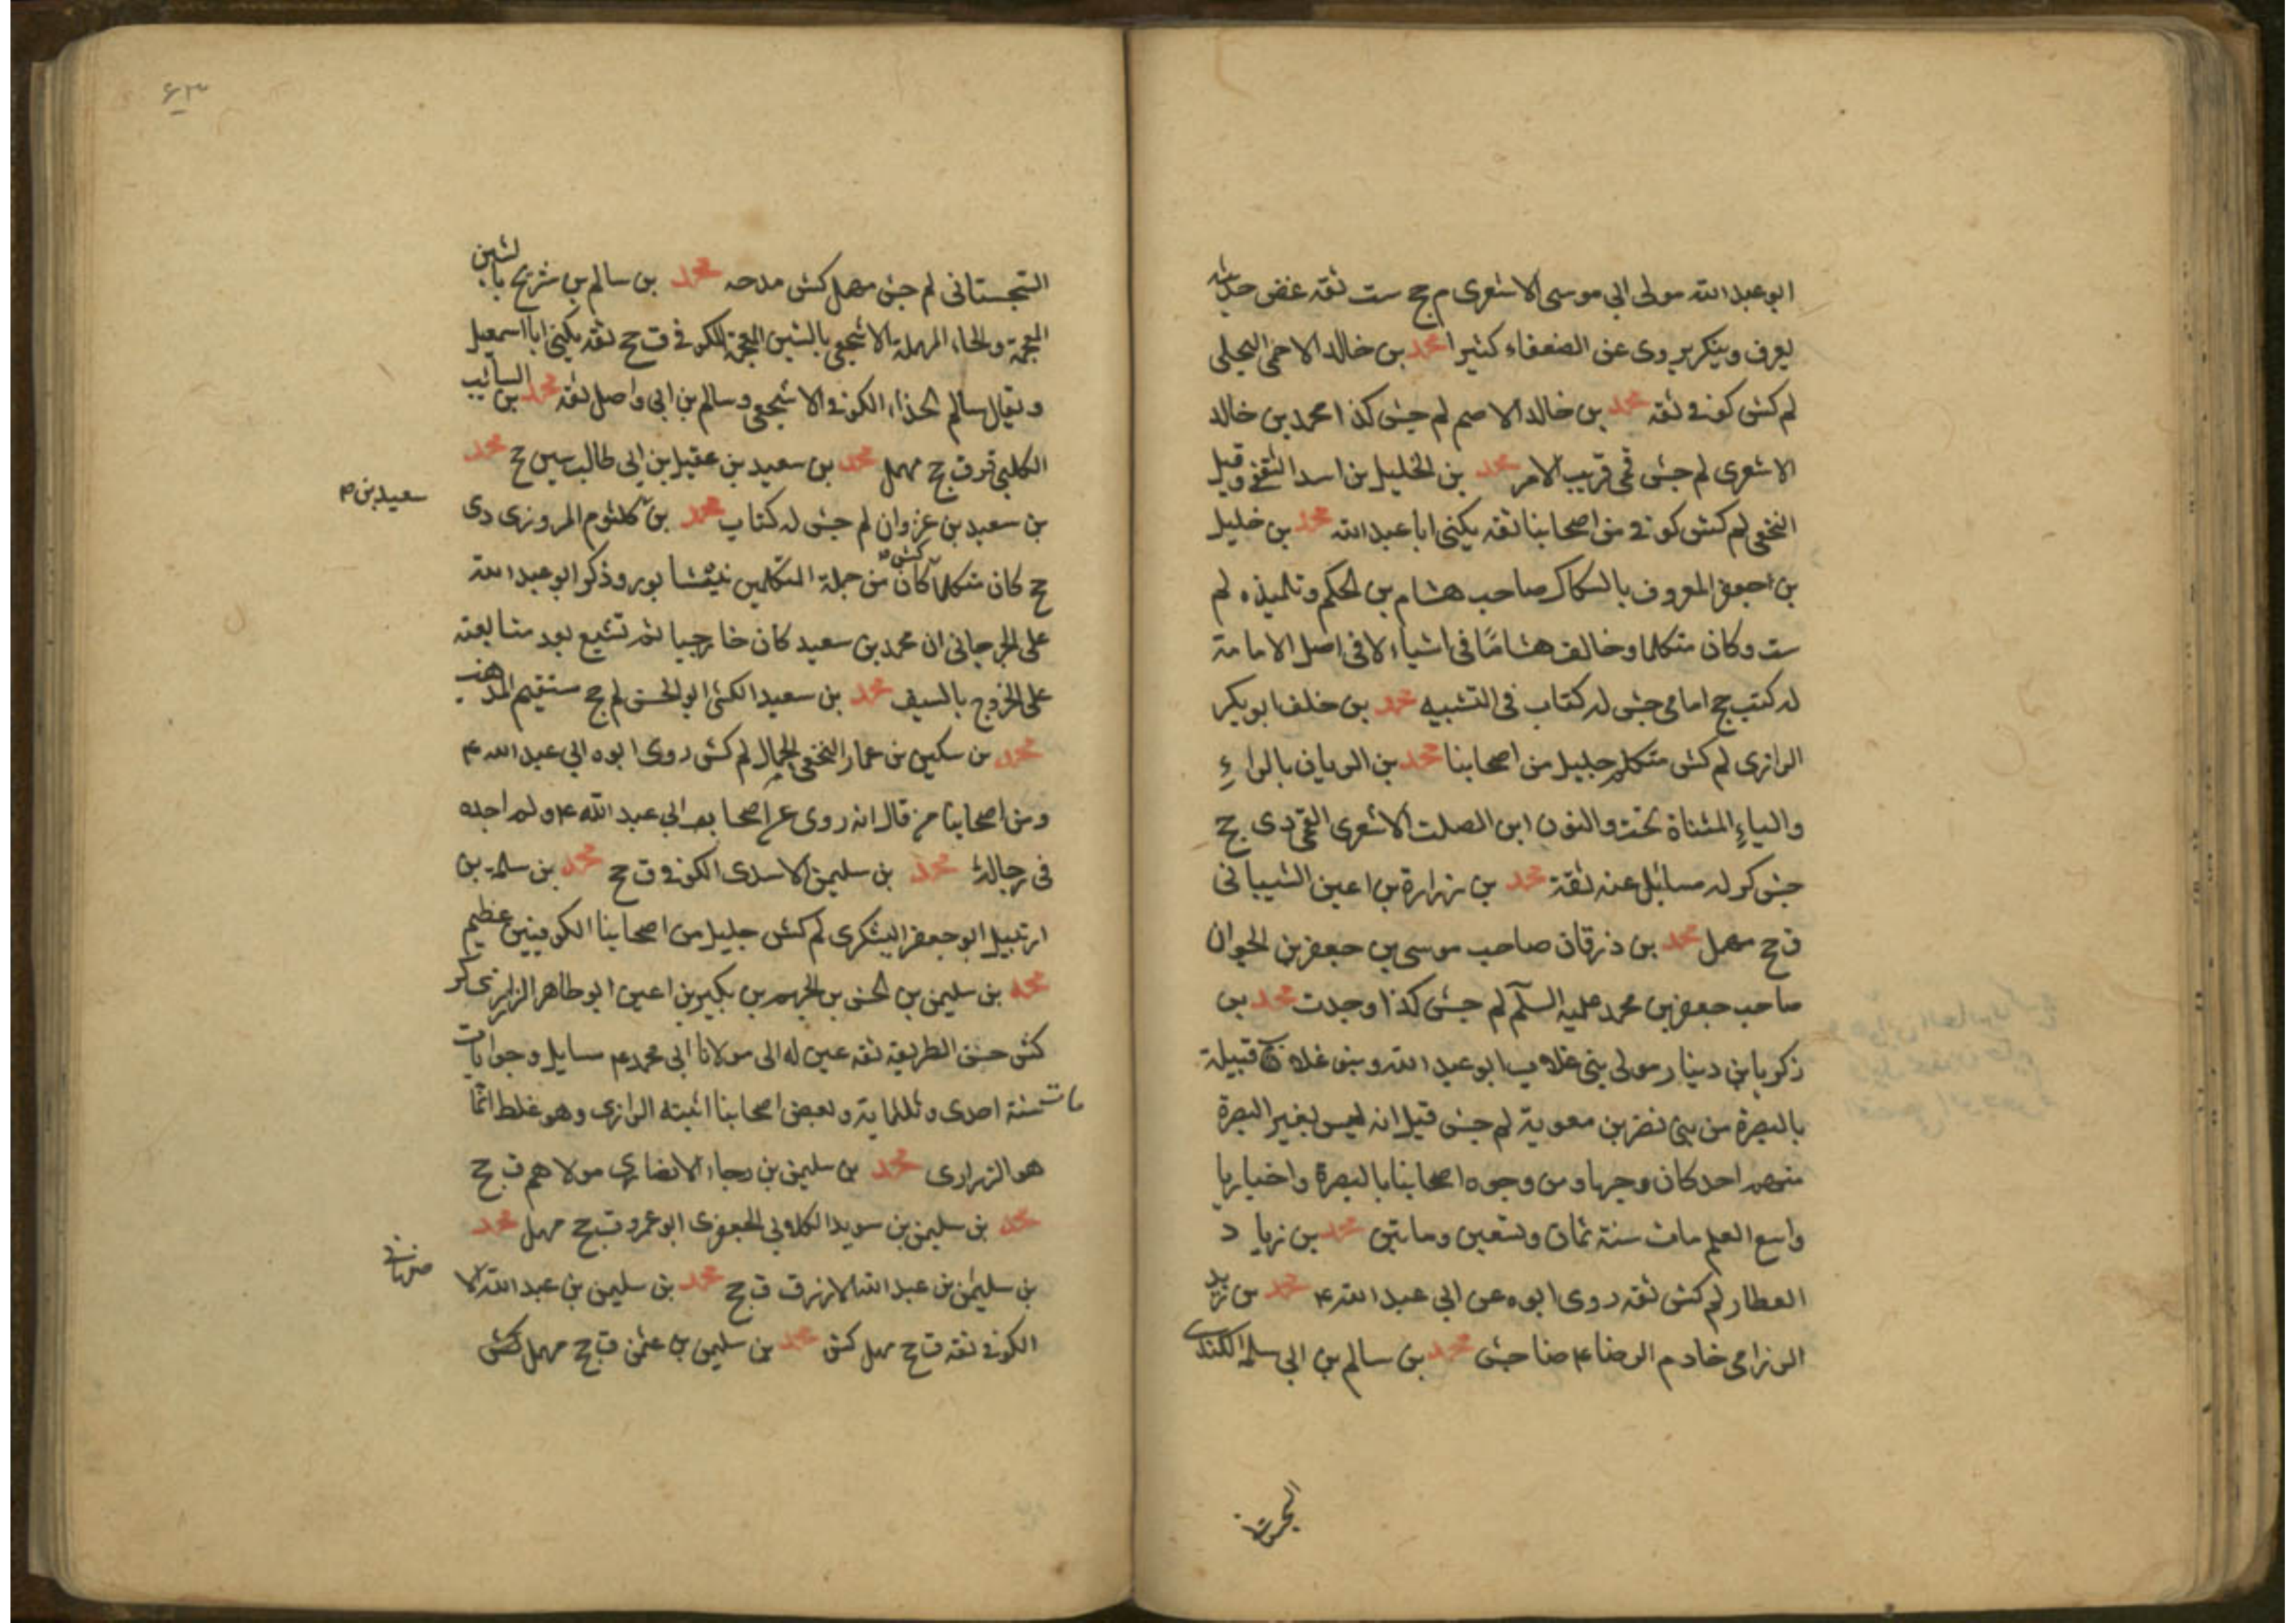 ابو عبد الله مولى ابي موسى الاشعرى م جح ست ثقه غض حديثه
يعرف وينكر يروى عن الضعفاء كثيرا محمد بن خالد الاحمى البجلى
لم كش كوفي ثقه محمد بن خالد الاصم لم جش كذا محمد بن خالد
الاشعرى لم جش قمى قريب الامر محمد بن الخليل بن اسد الثقفى وقيل
النخعى لم كش كوفي من اصحابنا ثقه يكنى ابا عبد الله محمد بن خليل
بن اجعفر المعروف بالسكاك صاحب هشام بن الحكم وتلميذه لم
ست وكان متكلما وخالف هشاما فى اشياء لا فى اصل الامامة
له كتب جح امامى جش له كتاب فى التشبيه محمد بن خلف ابو بكر
الرازى لم كش متكلم جليل من اصحابنا محمد بن الريان بالراء
والياء المثناة تحت والنون ابن الصلت الاشعرى القمى دى جح
جش كر له مسائل عنه ثقة محمد بن زرارة بن اعين الشيبانى
ق جح مهمل محمد بن ذرقان صاحب موسى بن جعفر بن الحوان
صاحب جعفر بن محمد عليه السلم لم جش كذا وجدت محمد بن
زكريا بن دينار مولى بنى غلاب ابو عبد الله وبنو غلاب قبيلة
بالبصرة من بنى نضر بن معوية لم جش قيل انه ليس بغير البصرة
منهم احد كان وجها من وجوه اصحابنا بالبصرة واخباريا
واسع العلم مات سنة ثمان وتسعين ومايتين محمد بن زياد
العطار لم كش ثقه روى ابوه عن ابي عبد الله ع محمد بن زيد
الرزامى خادم الرضا ع ضا جش محمد بن سالم بن ابى سلمه الكندى
السجستانى لم جش مهمل كش مدحه محمد بن سالم بن شريح بالشين
المعجمة والحاء المهملة الاشجعى بالشين المعجمة الكوفي ق جح ثقه يكنى ابا اسمعيل
ويقال سالم الحذاء الكوفي الاشجعى وسالم بن ابى واصل ثقه محمد بن السائب
الكلبى قر ق جح مهمل محمد بن سعيد بن عقيل بن ابى طالب سين جح محمد
بن سعيد بن عزوان لم جش له كتاب محمد بن كلثوم المروزى دى
سعيد بن م
جح كان متكلما كش كان من جملة المتكلمين بنيشابور وذكر ابو عبد الله
على الجرجانى ان محمد بن سعيد كان خارجيا ثم تشيع بعد متابعته
على الخروج بالسيف محمد بن سعيد الكشى ابو الحسن لم جح مستقيم المذهب
محمد بن سكين بن عمار النخعى الجمال لم كش روى ابوه ابي عبد الله ع
ومن اصحابنا من قال انه روى عن اصحاب ابى عبد الله ع ولم اجده
فى رجاله محمد بن سليمن الاسدى الكوفي ق جح محمد بن سلمه بن
ارتبيل ابو جعفر اليشكرى لم كش جليل من اصحابنا الكوفيين عظيم
محمد بن سليمن بن الحسن بن الجهم بن بكير بن اعين ابو طاهر الزرارى كر
كش حسن الطريقه ثقه عين له الى مولانا ابى محمد ع مسايل وجوابات
مات سنة احدى وثلثماية وبعض اصحابنا اثبته الرازى وهو غلط انما
هو الزرارى محمد بن سليمن بن رجاء الانصارى مولاهم ق جح
محمد بن سليمن بن سويد الكلابى الجعفرى ابو عمرو ق جح مهمل محمد
بن سليمن بن عبد الله الازرق ق جح محمد بن سليمن بن عبد الله الا
الكوفي ثقه ق جح مهمل كش محمد بن سليمن بن عثمن ق جح مهمل كش